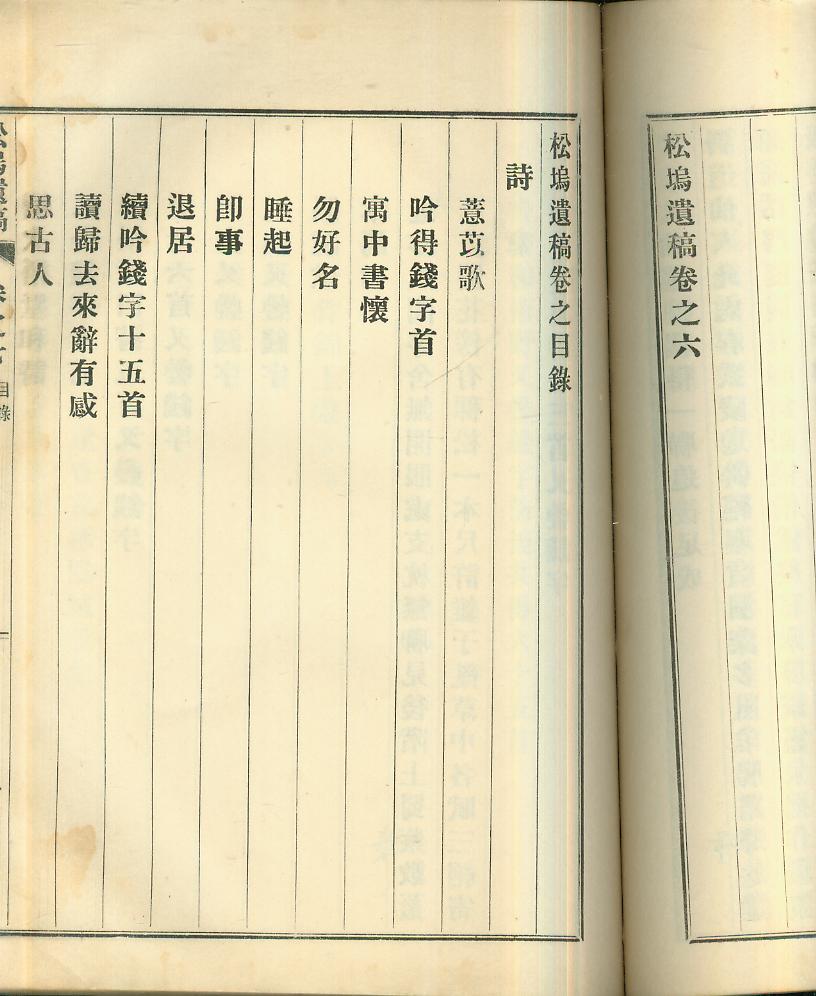 松塢遺稿卷之六
松塢遺稿卷之目錄
詩
薏苡歌
吟得錢字首
寓中書懷
勿好名
睡起
卽事
退居
續吟錢字十五首
讀歸去來辭有感
思古人
松塢遺稿
目錄